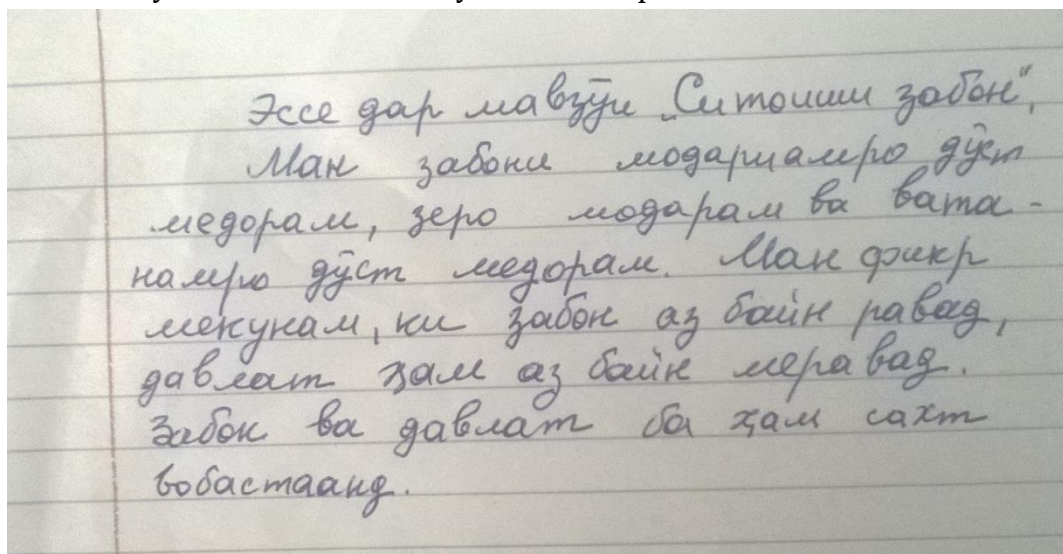 Эссе дар мавзӯи „Ситоиши забон“.
Ман забони модариамро дӯст
медорам, зеро модарам ва вата-
намро дӯст медорам. Ман фикр
мекунам, ки забон аз байн равад,
давлат ҳам аз байн меравад.
Забон ва давлат ба ҳам сахт
вобастаанд.